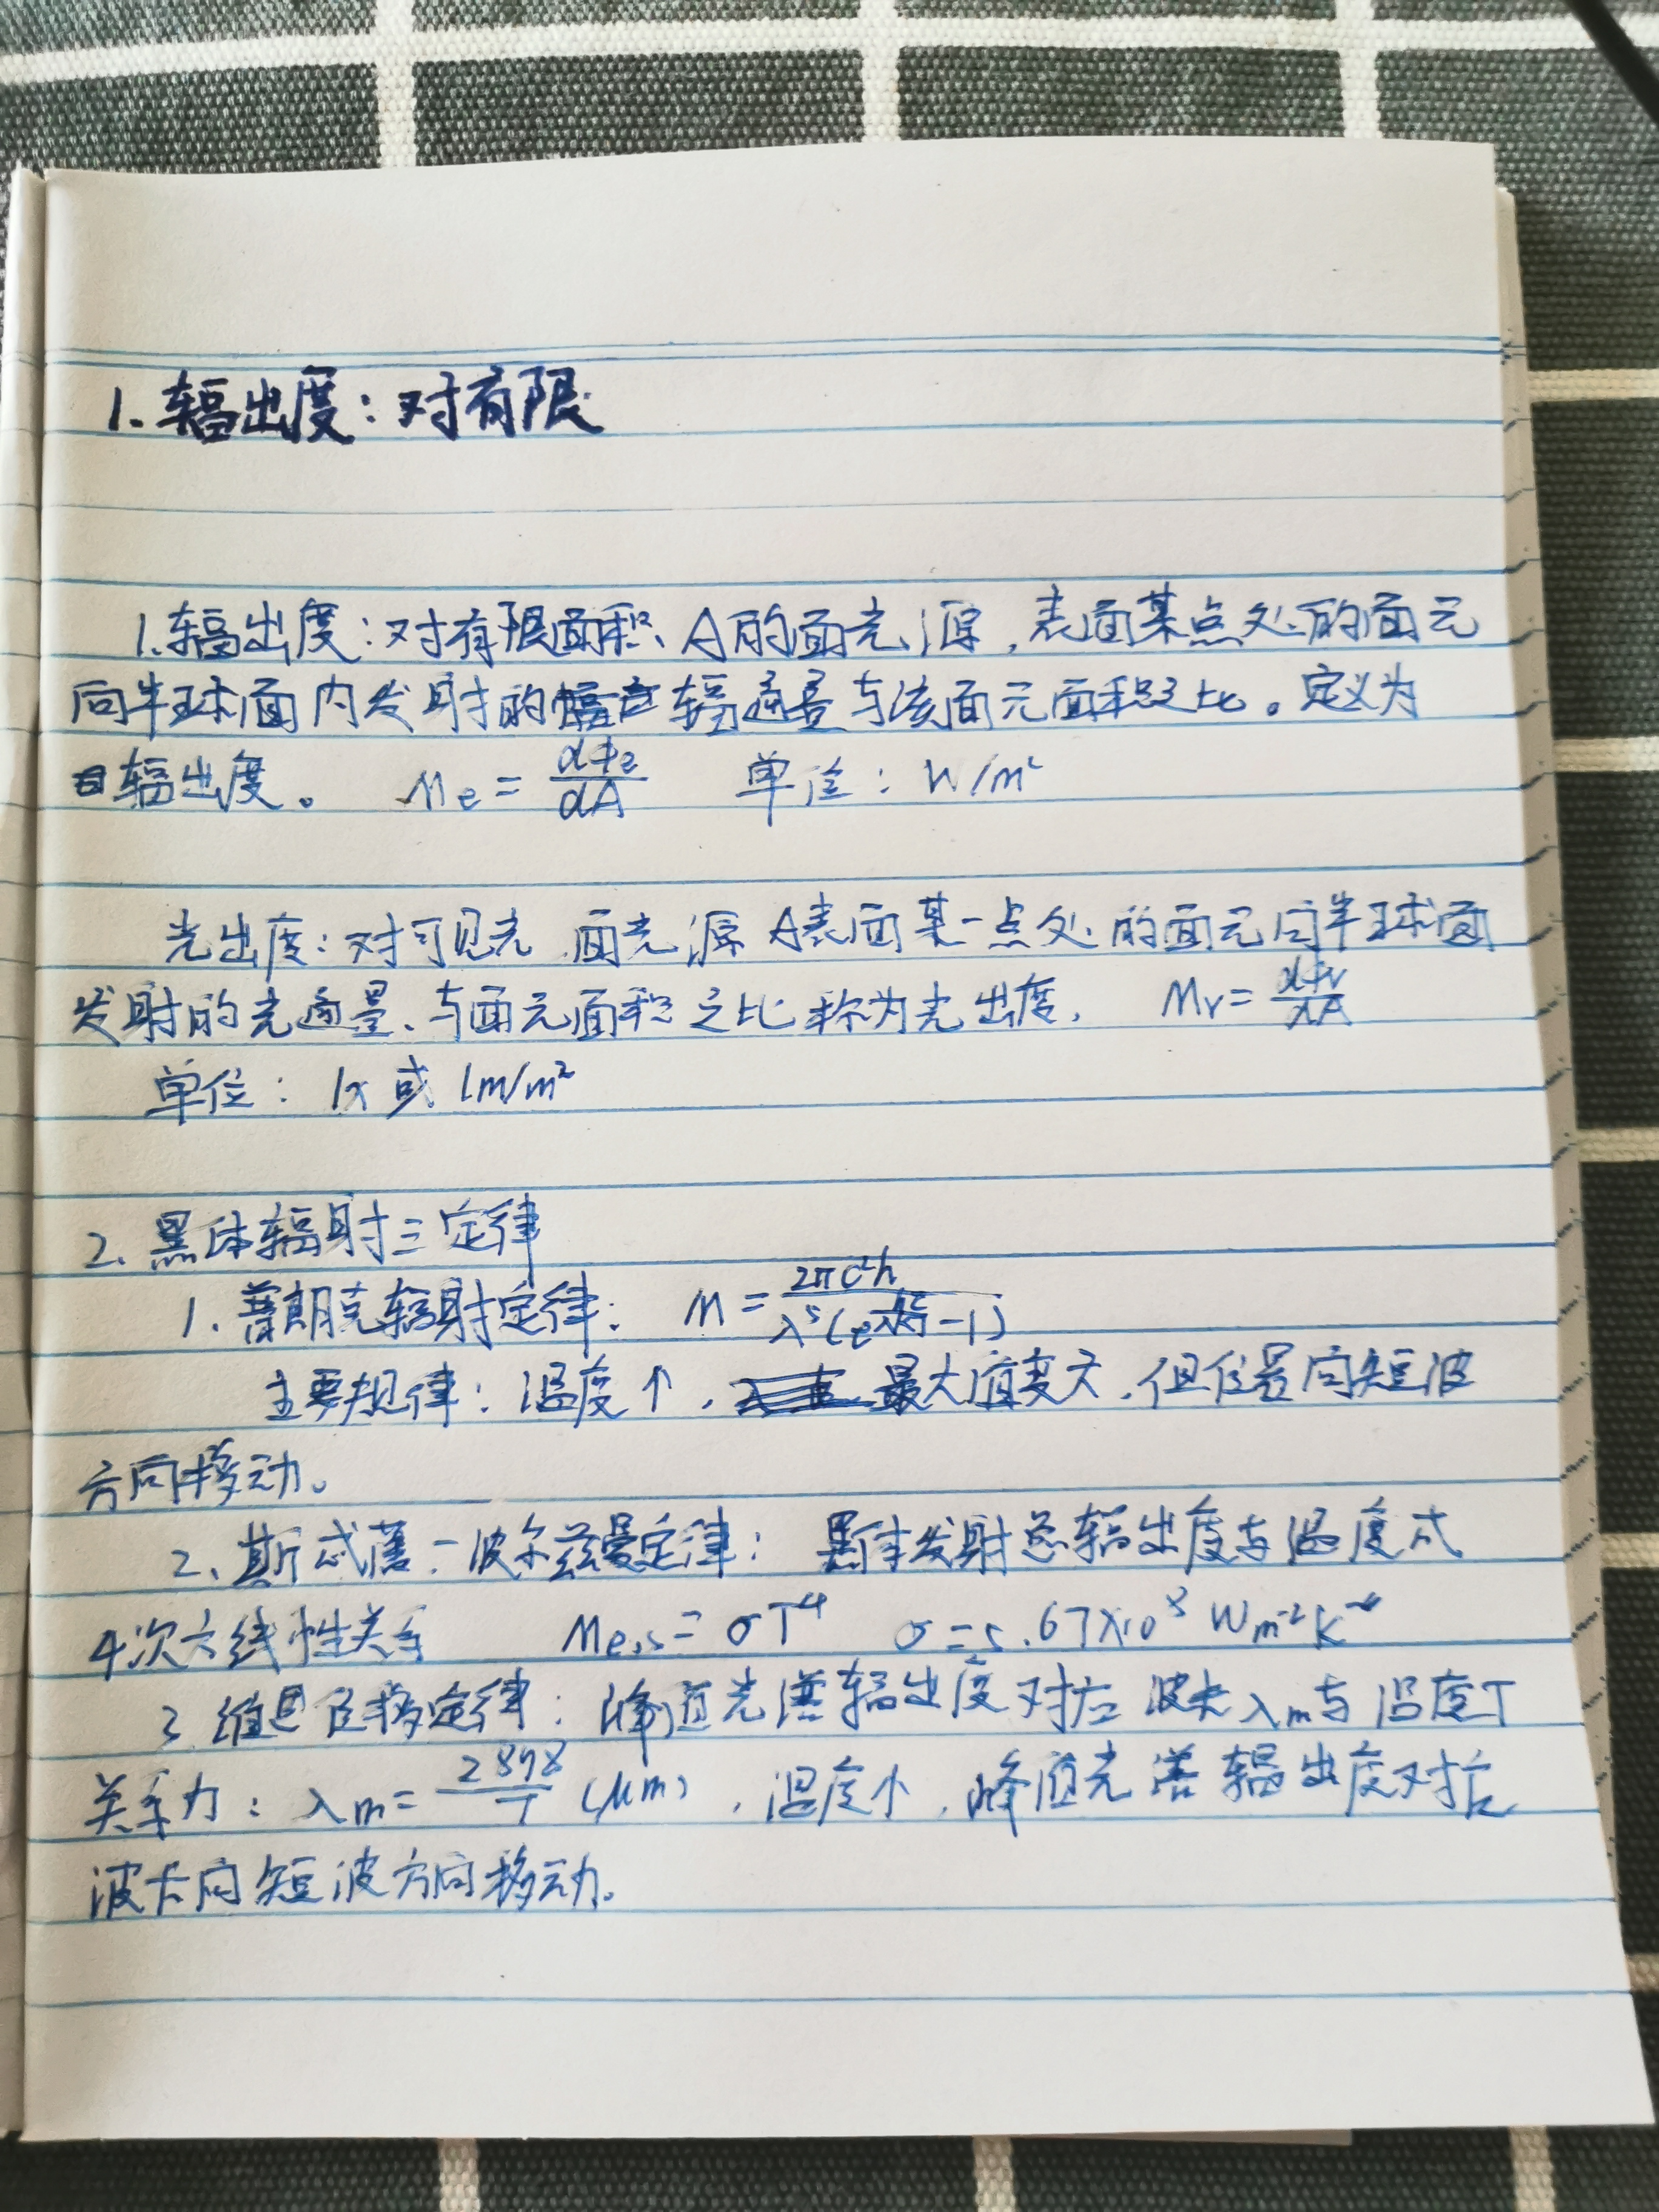 1. 辐出度：对有限
1.辐出度：对有限面积 A的面光源，表面某点处的面元
向半球面内发射的辐通量与该面元面积之比。定义为
辐出度。 Me = dΦe/dA 单位：W/m²
光出度：对可见光，面光源 A表面某一点处的面元向半球面
发射的光通量、与面元面积之比称为光出度， Mv = dΦv/dA
单位：lx 或 lm/m²
2. 黑体辐射三定律
1. 普朗克辐射定律： M = 2πc²h/λ⁵(e -1)
主要规律：温度↑，最大值变大，但位置向短波
方向移动。
2、斯忒藩-波尔兹曼定律：黑体发射总辐出度与温度成
4次方线性关系 Me,s = σT⁴ σ=5.67×10 Wm⁻²K⁻⁴
3 维恩位移定律：峰值光谱辐出度对应波长λm与温度T
关系为：λm = 2898/T (μm)，温度个，峰值光谱辐出度对应
波长向短波方向移动。